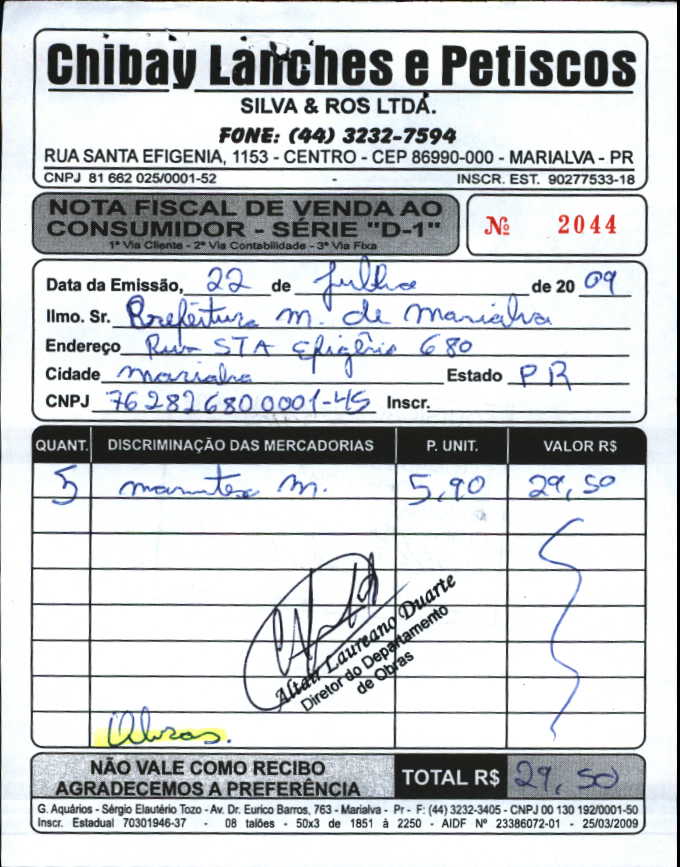 Chibay Lanches e Petiscos
SILVA & ROS LTDA.
FONE: (44) 3232-7594
RUA SANTA EFIGENIA, 1153 - CENTRO - CEP 86990-000 - MARIALVA - PR
CNPJ 81 662 025/0001-52 - INSCR. EST. 90277533-18
NOTA FISCAL DE VENDA AO
CONSUMIDOR - SÉRIE "D-1"
1ª Via Cliente - 2ª Via Contabilidade - 3ª Via Fixa
Nº 2044
Data da Emissão, 22 de Julho de 2009
Ilmo. Sr. Prefeitura M. de Marialva
Endereço Rua STA Efigênia 680
Cidade Marialva Estado PR
CNPJ 76282680 0001-45 Inscr.
QUANT. DISCRIMINAÇÃO DAS MERCADORIAS P. UNIT. VALOR R$
5 marmitex M. 5,90 29,50
Altair Laureano Duarte
Diretor do Departamento
de Obras
Obras.
NÃO VALE COMO RECIBO
AGRADECEMOS A PREFERÊNCIA
TOTAL R$ 29,50
G. Aquários - Sérgio Elautério Tozo - Av. Dr. Eurico Barros, 763 - Marialva - Pr - F: (44) 3232-3405 - CNPJ 00 130 192/0001-50
Inscr. Estadual 70301946-37 - 08 talões - 50x3 de 1851 à 2250 - AIDF Nº 23386072-01 - 25/03/2009